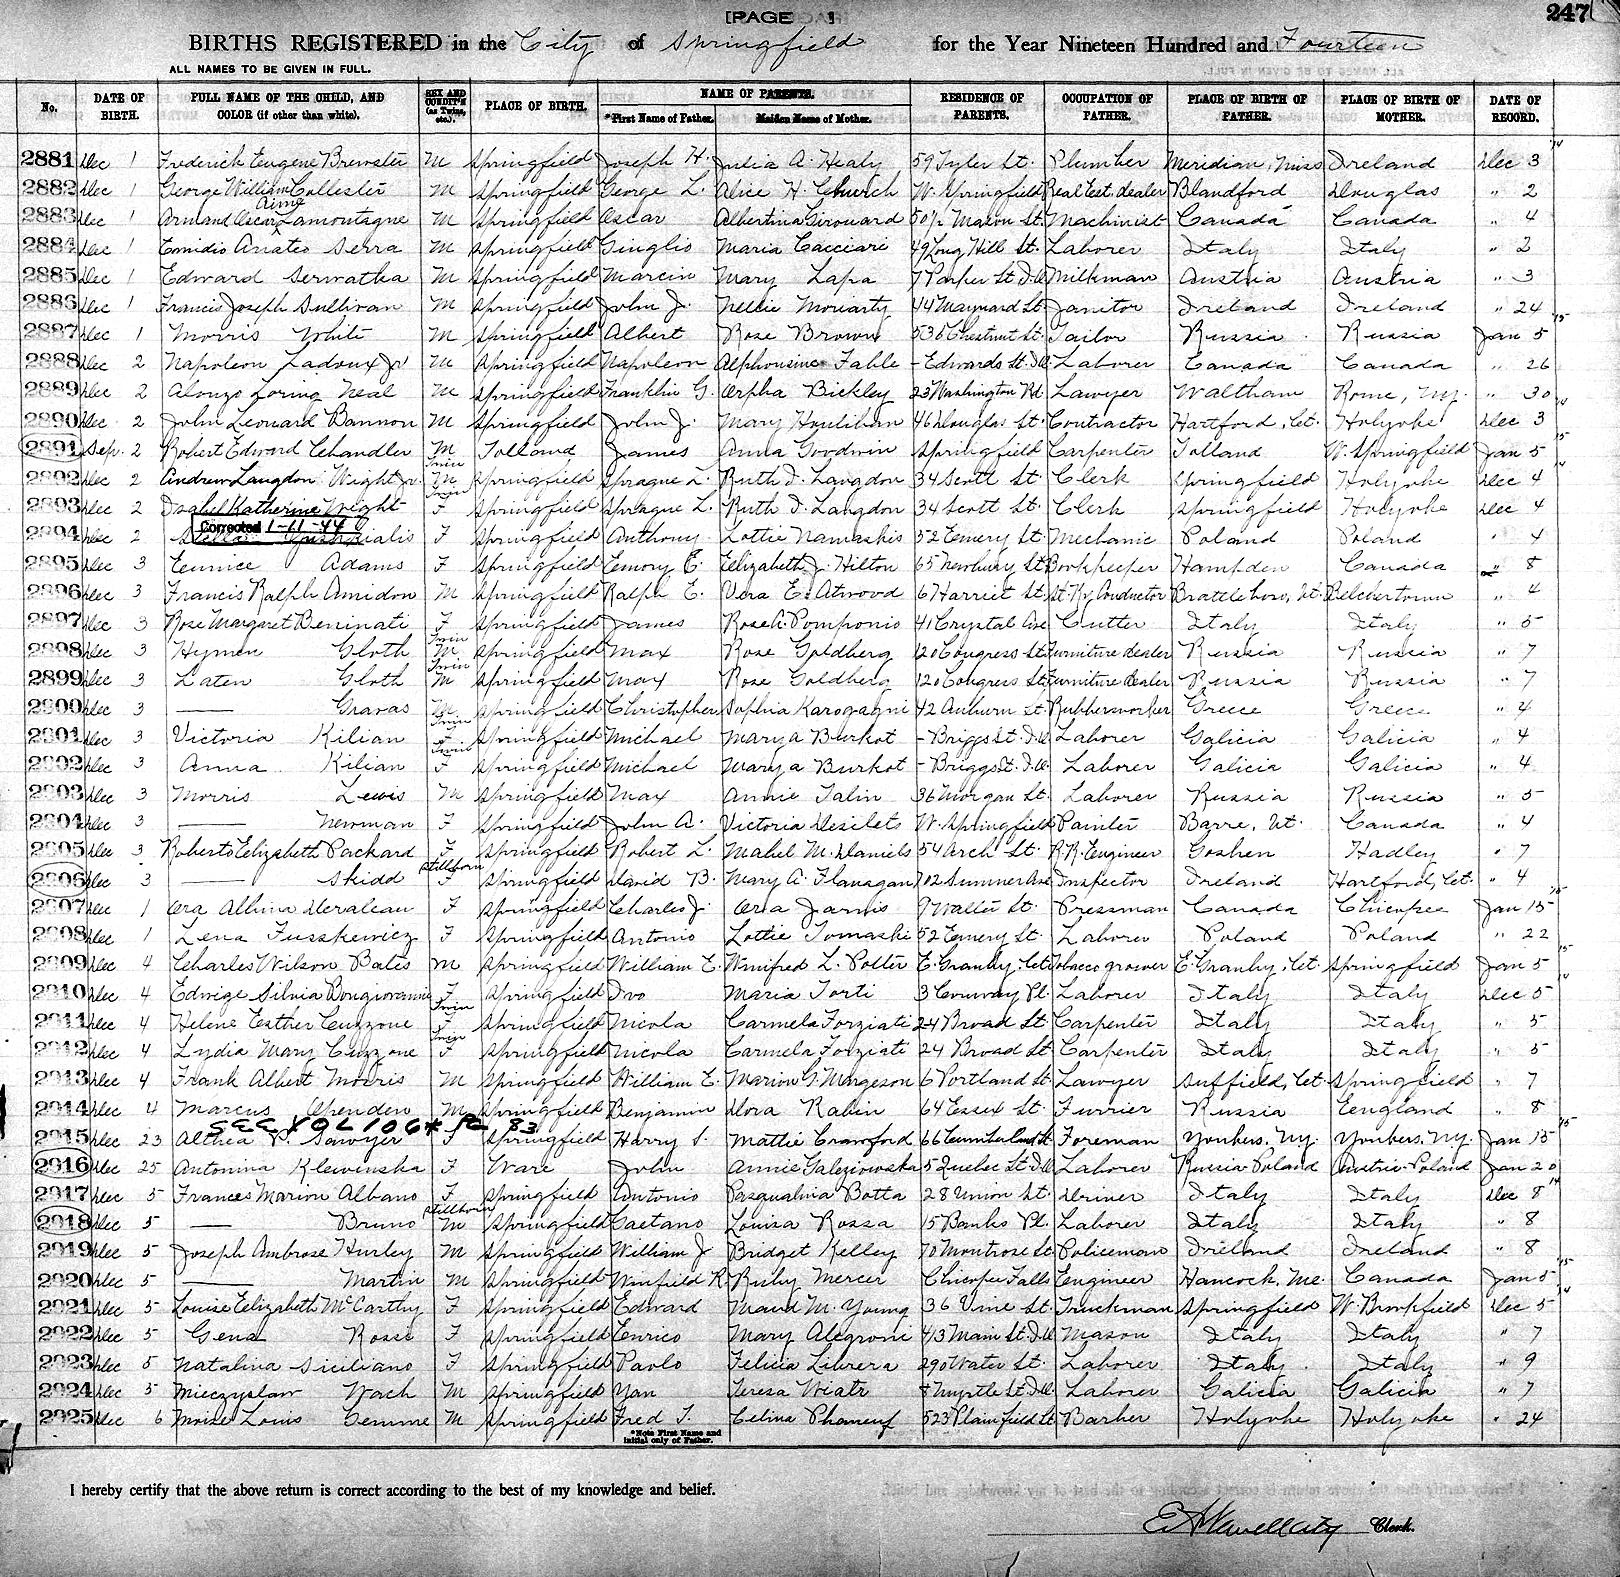 [PAGE 1]
247
BIRTHS REGISTERED in the City of Springfield for the Year Nineteen Hundred and Fourteen
ALL NAMES TO BE GIVEN IN FULL.
No. DATE OF BIRTH. FULL NAME OF THE CHILD, AND COLOR (if other than white). SEX AND CONDIT'N (as Twins, etc.). PLACE OF BIRTH. NAME OF PARENTS. *First Name of Father. Maiden Name of Mother. RESIDENCE OF PARENTS. OCCUPATION OF FATHER. PLACE OF BIRTH OF FATHER. PLACE OF BIRTH OF MOTHER. DATE OF RECORD.
2881 Dec 1 Frederick Eugene Brewster M Springfield Joseph H. Julia A. Healy 59 Tyler St. Plumber Meridian, Miss Ireland Dec 3 '14
2882 Dec 1 George William Collester M Springfield George L. Alice H. Church W. Springfield Real Est. dealer Blandford Douglas " 2
2883 Dec 1 Armand Oscar Aime Lamontagne M Springfield Oscar Albertina Girouard 50½ Mason St. Machinist Canada Canada " 4
2884 Dec 1 Emidio Serra M Springfield Maria Cacciari 49 Long Hill St. Laborer Italy Italy " 2
2885 Dec 1 Edward Serwatka M Springfield Marcin Mary Lapa 7 Parker St. I.O. Milkman Austria Austria " 3
2886 Dec 1 Francis Joseph Sullivan M Springfield John J. Nellie Moriarty 44 Maynard St. Janitor Ireland Ireland " 24
2887 Dec 1 Morris White M Springfield Albert Rose Brown 536 Chestnut St. Tailor Russia Russia Jan 5 '15
2888 Dec 2 Napoleon Ladoux Jr M Springfield Napoleon Alphonsine Fable - Edwards St. I.O. Laborer Canada Canada " 26
2889 Dec 2 Alonzo Loring Neal M Springfield Franklin G. Orpha Bickley 23 Washington Rd. Lawyer Waltham Rome, N.Y. " 30
2890 Dec 2 John Leonard Bannon M Springfield John J. Mary Houlihan 46 Douglas St. Contractor Hartford, Ct. Holyoke Dec 3 '14
2891 Sep. 2 Robert Edward Chandler M Tolland James Anna Goodwin Springfield Carpenter Tolland W. Springfield Jan 5 '15
2892 Dec 2 Andrew Langdon Wright Jr. Twin M Springfield Sprague L. Ruth D. Langdon 34 Scott St. Clerk Springfield Holyoke Dec 4 '14
2893 Dec 2 Isabel Katherine Wright Twin F Springfield Sprague L. Ruth D. Langdon 34 Scott St. Clerk Springfield Holyoke Dec 4
Corrected 1-11-44
2894 Dec 2 Stella F Springfield Anthony Lottie Namaskis 52 Emery St. Mechanic Poland Poland " 4
2895 Dec 3 Eunice Adams F Springfield Emory E. Elizabeth J. Hilton 65 Newbury St. Bookkeeper Hampden Canada " 8
2896 Dec 3 Francis Ralph Amidon M Springfield Ralph E. Vera E. Atwood 67 Harriet St. St. Ry. Conductor Brattleboro, Vt. Belchertown " 4
2897 Dec 3 Rose Margaret Beninati F Springfield James Rose A. Pomponio 41 Crystal Ave Cutter Italy Italy " 5
2898 Dec 3 Hymen Gloth Twin M Springfield Max Rose Goldberg 120 Congress St. Furniture dealer Russia Russia " 7
2899 Dec 3 Laten Gloth Twin M Springfield Max Rose Goldberg 120 Congress St. Furniture dealer Russia Russia " 7
2900 Dec 3 — Gravas M Springfield Christopher Sophia Karogagni 42 Auburn St. Rubberworker Greece Greece " 4
2901 Dec 3 Victoria Kilian Twin F Springfield Michael Marya Burkot - Briggs St. I.O. Laborer Galicia Galicia " 4
2902 Dec 3 Anna Kilian Twin F Springfield Michael Marya Burkot - Briggs St. I.O. Laborer Galicia Galicia " 4
2903 Dec 3 Morris Lewis M Springfield Max Annie Talin 36 Morgan St. Laborer Russia Russia " 5
2904 Dec 3 — Newman F Springfield John A. Victoria Desilets W. Springfield Painter Barre, Vt. Canada " 4
2905 Dec 3 Roberto Elizabeth Packard F Springfield Robert L. Mabel M. Daniels 54 Arch St. R.R. Engineer Goshen Hadley " 7
2906 Dec 3 — Skidd Stillborn F Springfield David B. Mary A. Flanagan 702 Sumner Ave Inspector Ireland Hartford, Ct. " 4
2907 Dec 1 Ora Albina Deraleau F Springfield Charles J. Ora Jarvis 9 Walter St. Pressman Canada Chicopee Jan 15 '15
2908 Dec 1 Lena Fusskewicz F Springfield Antonio Lottie Tomaski 52 Emery St. Laborer Poland Poland " 22
2909 Dec 4 Charles Wilson Bates M Springfield William E. Winifred L. Potter E. Granby, Ct. Tobacco grower E. Granby, Ct. Springfield Jan 5 '15
2910 Dec 4 Edwige Silvia Bongiovanni F Springfield Ivo Maria Torti 3 Conway Pl. Laborer Italy Italy Dec 5 '14
2911 Dec 4 Helene Esther Cuzzone Twin F Springfield Nicola Carmela Forziati 24 Broad St. Carpenter Italy Italy " 5
2912 Dec 4 Lydia Mary Cuzzone Twin F Springfield Nicola Carmela Forziati 24 Broad St. Carpenter Italy Italy " 5
2913 Dec 4 Frank Albert Morris M Springfield William E. Marion G. Margeson 6 Portland St. Lawyer Suffield, Ct. Springfield " 7
2914 Dec 4 Marcus Openden M Springfield Benjamin Dora Rabin 64 Essex St. Furrier Russia England " 8
SEE VOL 106 * P 83
2915 Dec 23 Althea P. Sawyer F Springfield Harry S. Mattie Crawford 66 Cumberland St. Foreman Yonkers, N.Y. Yonkers, N.Y. Jan 15 '15
2916 Dec 25 Antonina Klewinska F Ware John Annie Galeziowska 5 Quebec St. I.O. Laborer Russia-Poland Austria-Poland Jan 20
2917 Dec 5 Frances Marion Albano F Springfield Antonio Pasqualina Botta 28 Union St. Driver Italy Italy Dec 8 '14
2918 Dec 5 — Bruno Stillborn M Springfield Gaetano Louisa Rossa 15 Banks Pl. Laborer Italy Italy " 8
2919 Dec 5 Joseph Ambrose Hurley M Springfield William J. Bridget Kelley 70 Montrose St. Policeman Ireland Ireland " 8
2920 Dec 5 — Martin M Springfield Winfield R. Ruby Mercer Chicopee Falls Engineer Hancock, Me. Canada Jan 5 '15
2921 Dec 5 Louise Elizabeth McCarthy F Springfield Edward Maud M. Young 36 Vine St. Truckman Springfield W. Brookfield Dec 5 '14
2922 Dec 5 Gena Rossi F Springfield Enrico Mary Alegroni 413 Main St. I.O. Mason Italy Italy " 7
2923 Dec 5 Natalina Siciliano F Springfield Paolo Felicia Librera 290 Water St. Laborer Italy Italy " 9
2924 Dec 5 Mieczyslaw Wach M Springfield Yan Teresa Wiatr Myrtle St. I.O. Laborer Galicia Galicia " 7
2925 Dec 6 Moise Louis Gemme M Springfield Fred T. Celina Phaneuf 523 Plainfield St. Barber Holyoke Holyoke " 24
*Note First Name and initial only of Father.
I hereby certify that the above return is correct according to the best of my knowledge and belief.
E. A. Newell City Clerk.